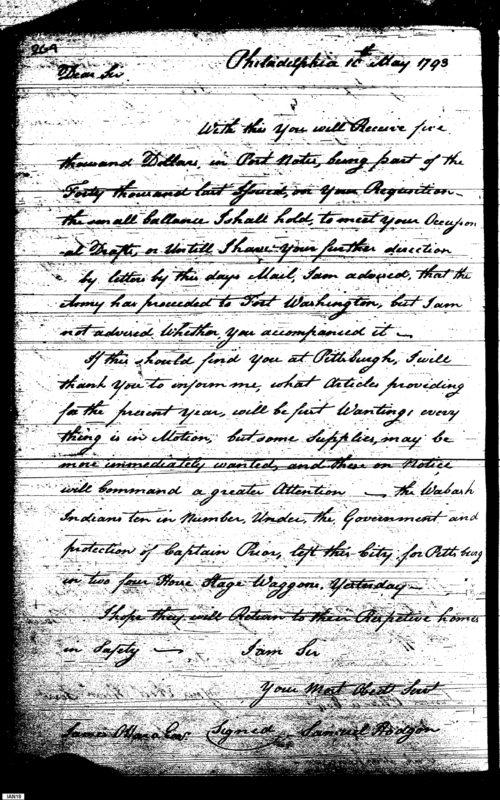 264
Philadelphia 10th May 1793
Dear Sir.
With this You will Receive five
thousand Dollars, in Post Notes, being part of the
Forty thousand last Issued, on Your Requisition
the small ballance I shall hold, to meet your Occasion
-al Draft, or Untill I have your further direction
by letters by this days Mail, I am advised, that the
Army has proceeded to Fort Washington, but I am
not advised Whether You accompanied it —
If this should find You at Pittsburgh, I will
thank You to inform me, what Articles providing
for the present Year, will be first Wanting; every
thing is in Motion, but some Supplies, may be
more immediately wanted, and these on Notice
will Command a greater Attention — the Wabash
Indians ten in Number, Under, the Government and
protection of Captain Prior, left this City, for Pittsburg
in two four Horse Stage Waggons, Yesterday —
I hope they will Return to their Respetive homes
in Safety — I am Sir
Your Most Obedt Servt
James OHara Signed Samuel Hodgdon
IAN18